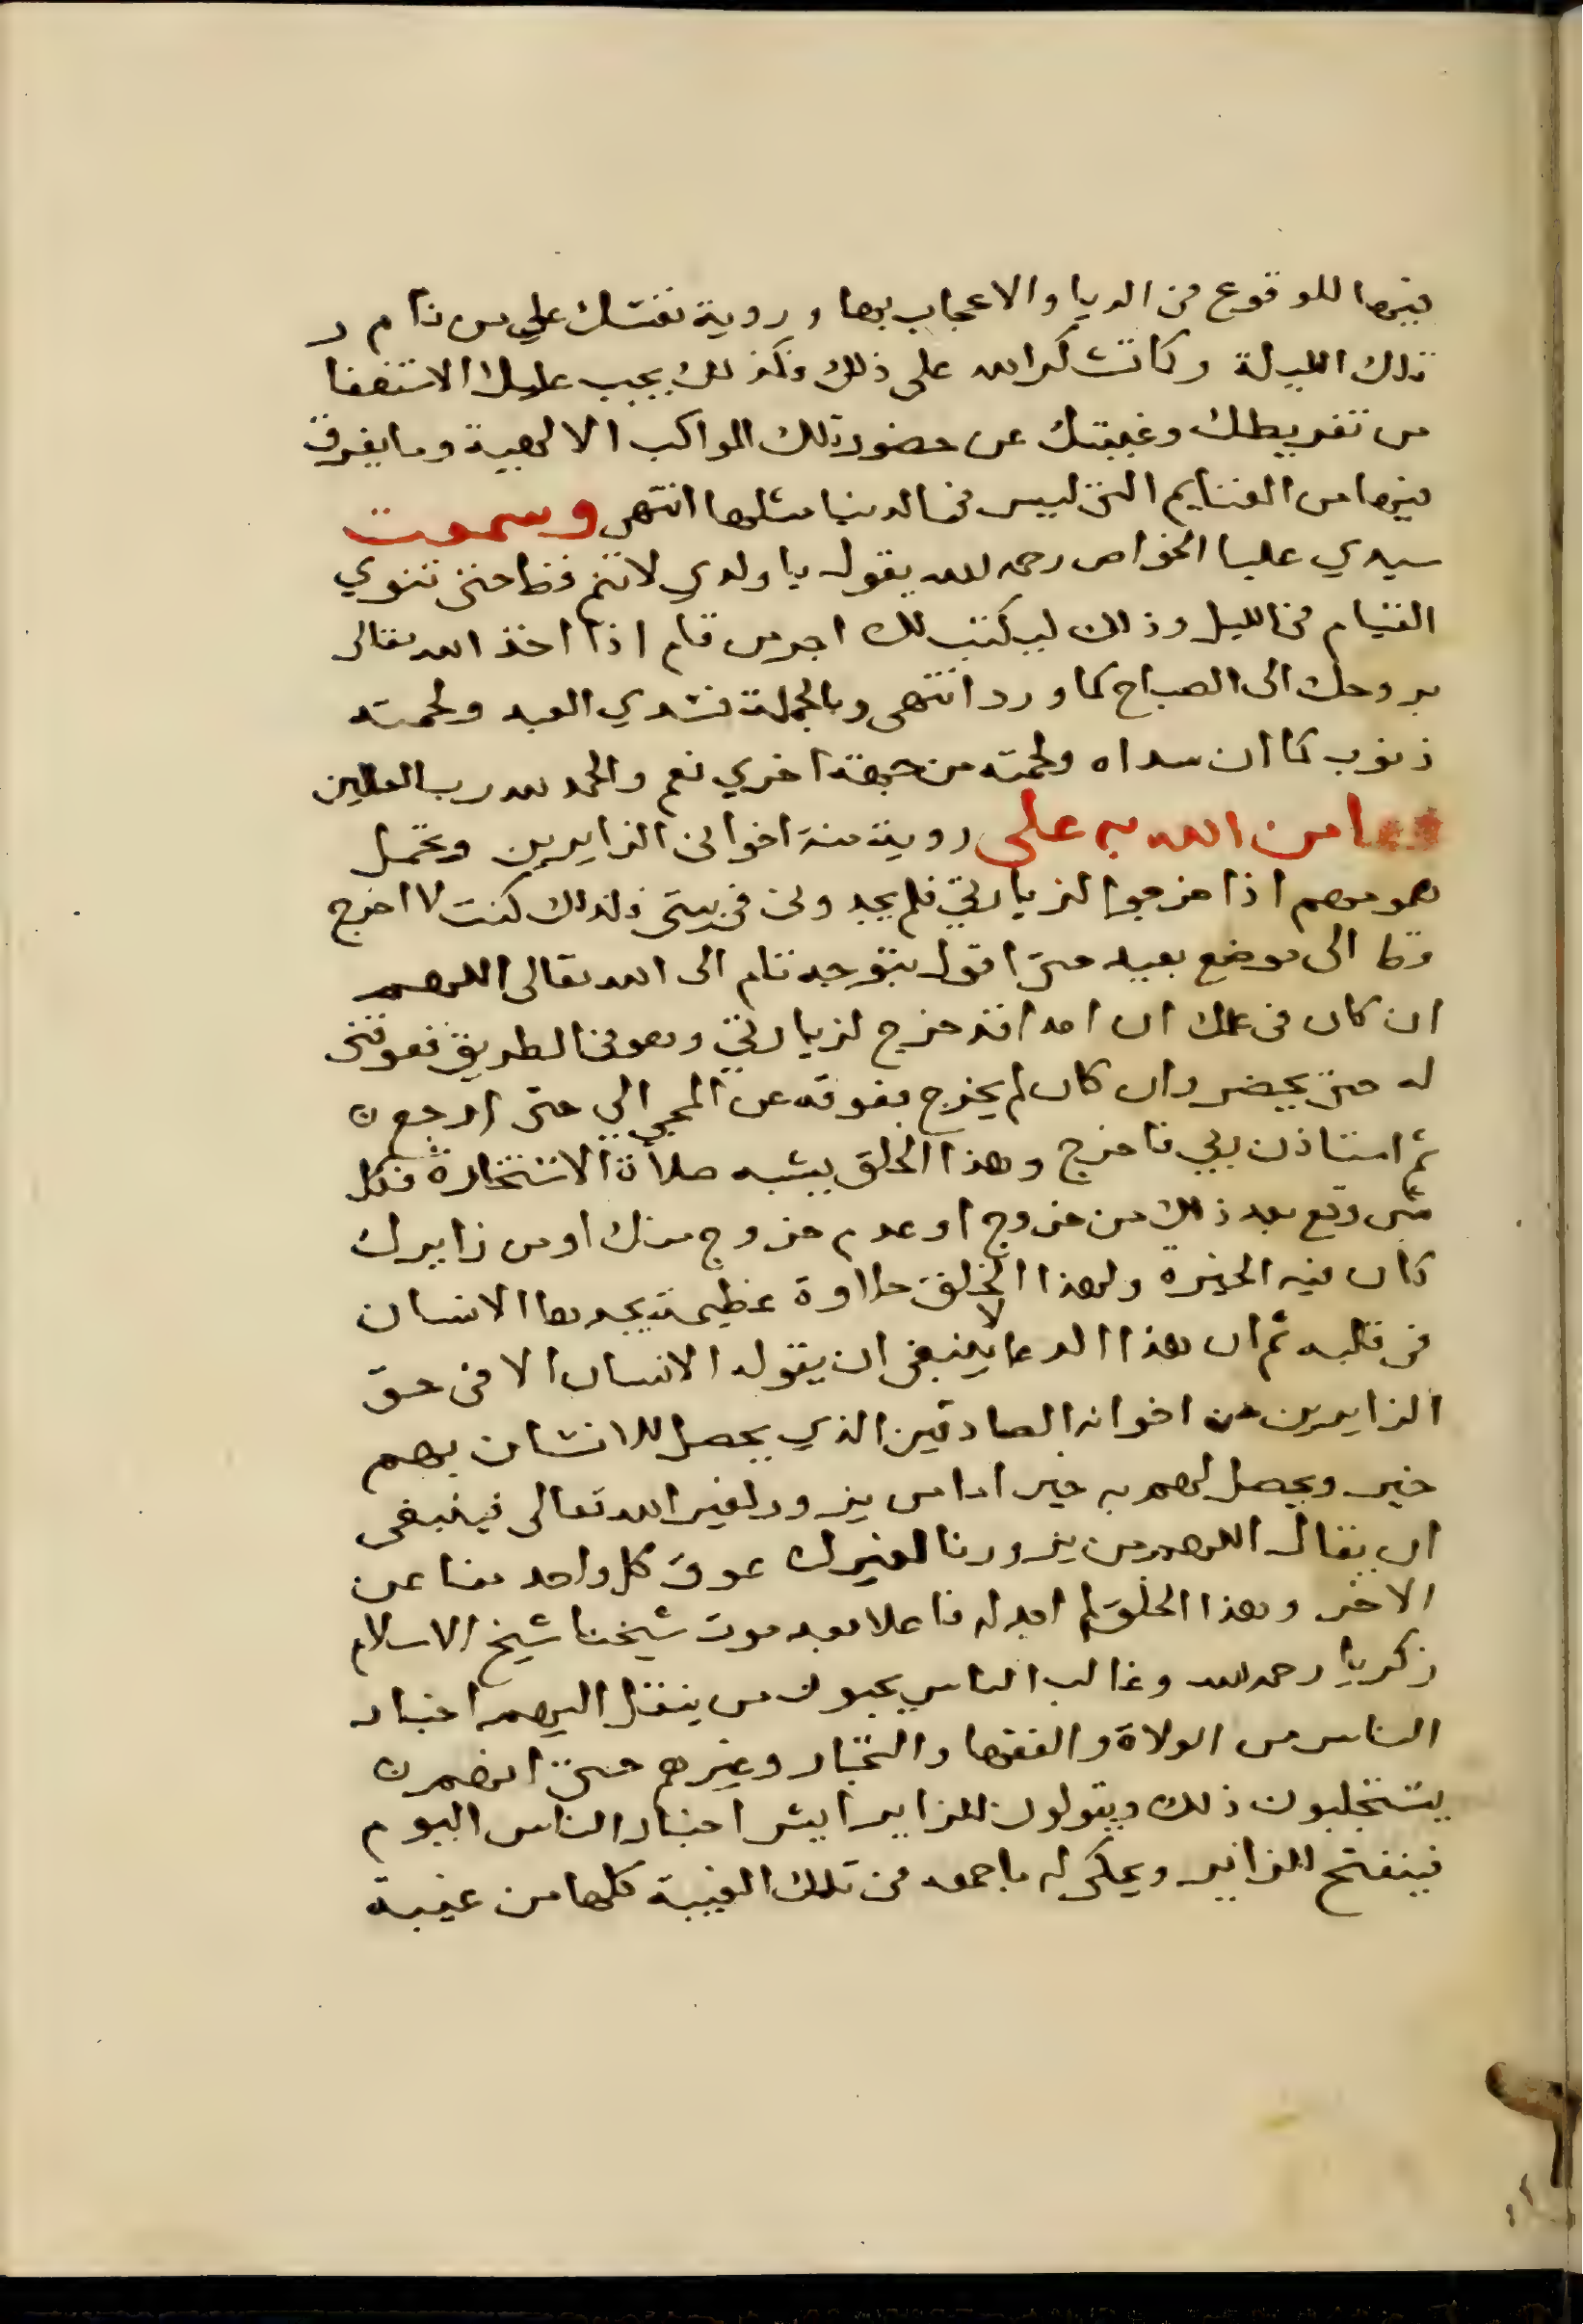 فيها للوقوع في الريا والاعجاب بها ورويه نفسك علي من نام ر
تلك الليلة وكما تشكر الله على ذلك فكذلك يجب عليك الاستغفا
من تفريطك وغيبتك عن حضور تلك المواكب الالهية وما يفرق
فيها من الغنايم التي ليس في الدنيا مثلها انتهى وسمعت
سيدي عليا الخواص رحمه الله يقول يا ولدي لا تنم قط حتى تنوي
القيام في الليل وذلك ليكتب لك اجر من قام اذا اخذ الله تعالى
بروحك الى الصباح كما ورد انتهى وبالجملة فسدي العبد ولحمته
ذنوب كما ان سداه ولحمته من جهة اخري نعم والحمد لله رب العالمين
من الله به على روية منة اخواني الزايرين وتحمل
همومهم اذا خرجوا لزيارتي فلم يجدوني في بيتي ولذلك كنت لا اخرج
قط الى موضع بعيد حتى اقول بتوجه تام الى الله تعالى اللهم
ان كان في علمك ان احدا قد خرج لزيارتي وهو في الطريق فعوقني
له حتى يحضر وان كان لم يخرج فعوقه عن المجي الي حتى ارجع ن
ثم استاذن ربي فاخرج وهذا الخلق يشبه صلاة الاستخارة فكل
شي وقع بعد ذلك من خروج او عدم خروج منك او من زايرك
كان فيه الخيرة ولهذا الخلق حلاوة عظيمة يجدها الانسان
في قلبه ثم ان هذا الدعا لا ينبغي ان يقوله الانسان الا في حق
الزايرين من اخوانه الصادقين الذي يحصل للانسان بهم
خير ويحصل لهم به خير اما من يزور لغير الله تعالى فينبغي
ان يقال اللهم من يزورنا لغيرك عوق كل واحد منا عن
الاخر وهذا الخلق لم اجد له فاعلا بعد موت شيخنا شيخ الاسلام
زكريا رحمه الله وغالب الناس يحبون من ينقل اليهم اخبار
الناس من الولاة والفقها والتجار وغيرهم حتى انهم ن
يستجلبون ذلك ويقولون للزاير ايش اخبار الناس اليوم
فينفتح الزاير ويحكي له ما جمعه من تلك الغيبة كلها من غيبة